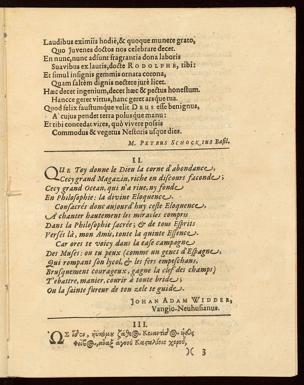 Laudibus eximiis hodiè, & quoque munere grato,
Quo Juvenes doctos nos celebrare decet.
En nunc, nunc adsunt fragrantia dona laboris
Suavibus ex lauris, docte RODOLPHE, tibi:
Et simul insignis gemmis ornata corona,
Quam saltem dignis nectere jure licet.
Hæc decet ingenium, decet hæc & pectus honestum.
Hancce geret virtus, hanc geret arsque tua.
Quod felix faustumque velit DEUS esse benignus,
A cujus pendet terra polusque manu:
Et tibi concedat vires, quò vivere possis
Commodus & vegetus Nestoris usque dies.
M. PETRUS SCHOCKIUS Basil.
II.
QUE Toy donne le Dieu la corne d'abondance,
Ce cy grand Magazin, riche en discours faconde;
Ce cy grand Ocean, qui n'a rive, ny fonde
En Philosophie: la divine Eloquence.
Consacrée donc aujourd'huy ceste Eloquence
A chanter hautement les miracles compris
Dans la Philosophie sacrée; & de tous Esprits
Versé là, mon Amis, toute la quinte Essence.
Car ores te voicy dans la ease campagne
Des Muses: ou tu peux (comme un genet d'Espagne,
Qui rompant son lycol, & les fers empeschans,
Brusquement courageux, gagne la clef des champs)
T'ebattre, manier, courir à toute bride;
Ou la sainte fureur de ton zele te guide.
JOHAN ADAM WIDDER,
Vangio-Neuhusianus.
III.
)( 3